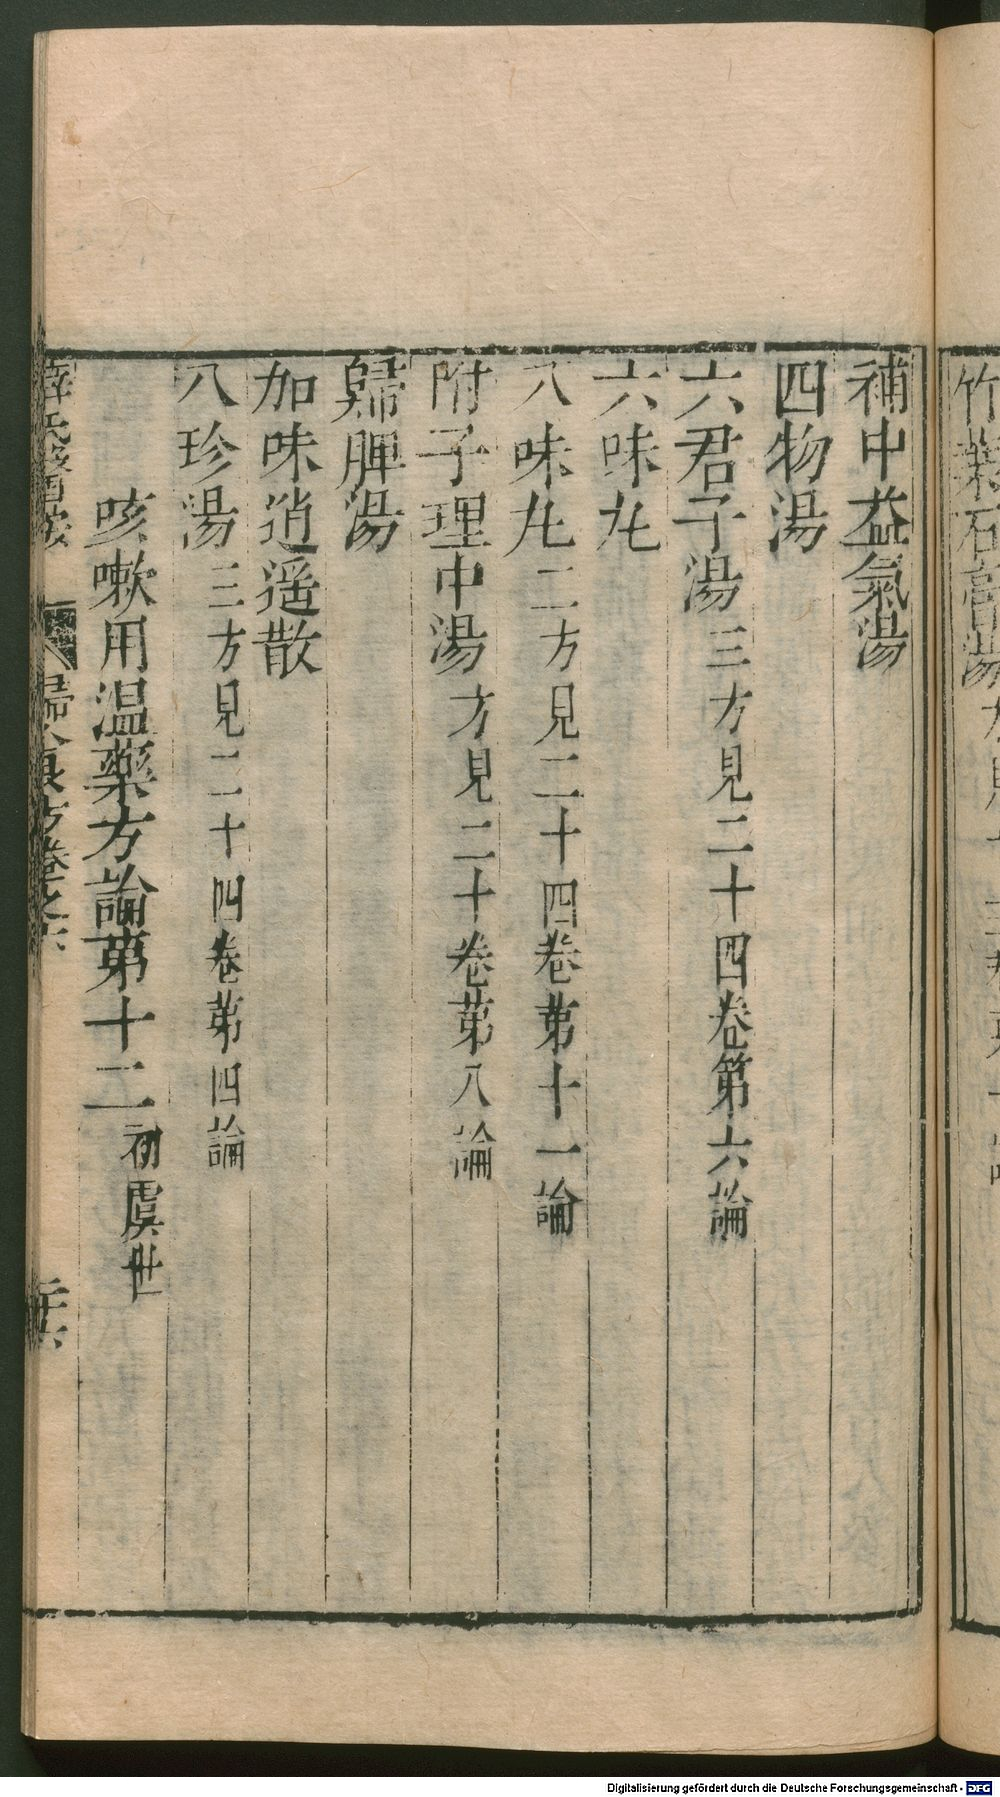 竹葉石膏湯
補中益氣湯
四物湯
六君子湯 三方見二十四卷第六論
六味丸
八味丸 二方見二十四卷第十一論
附子理中湯 方見二十卷第八論
歸脾湯
加味逍遥散
八珍湯 三方見二十四卷第四論
咳嗽用温藥方論第十二 初虞世
薛氏醫按 婦人良方卷之六 二十六
Digitalisierung gefördert durch die Deutsche Forschungsgemeinschaft - DFG